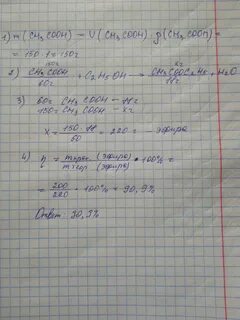 1) m(CH3COOH) = V(CH3COOH) · ρ(CH3COOH) =
= 150 · 1 = 150г
150г xг
2) CH3COOH + C2H5OH = CH3COOC2H5 + H2O
60г 88г
3) 60г CH3COOH – 88г
150г CH3COOH – xг
x = 150 · 88 / 60 = 220г – эфира
4) η = mпрак (эфира) / mтеор (эфира) · 100% =
= 200 / 220 · 100% = 90,9%
Ответ: 90,9%